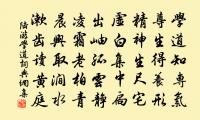 學道知專氣
尊生得養形
精神生尺宅
虛白集中扃
出岫孤雲靜
凌霜老柏青
晨興取澗水
漱齒讀黃庭
陸游學道詞典網集